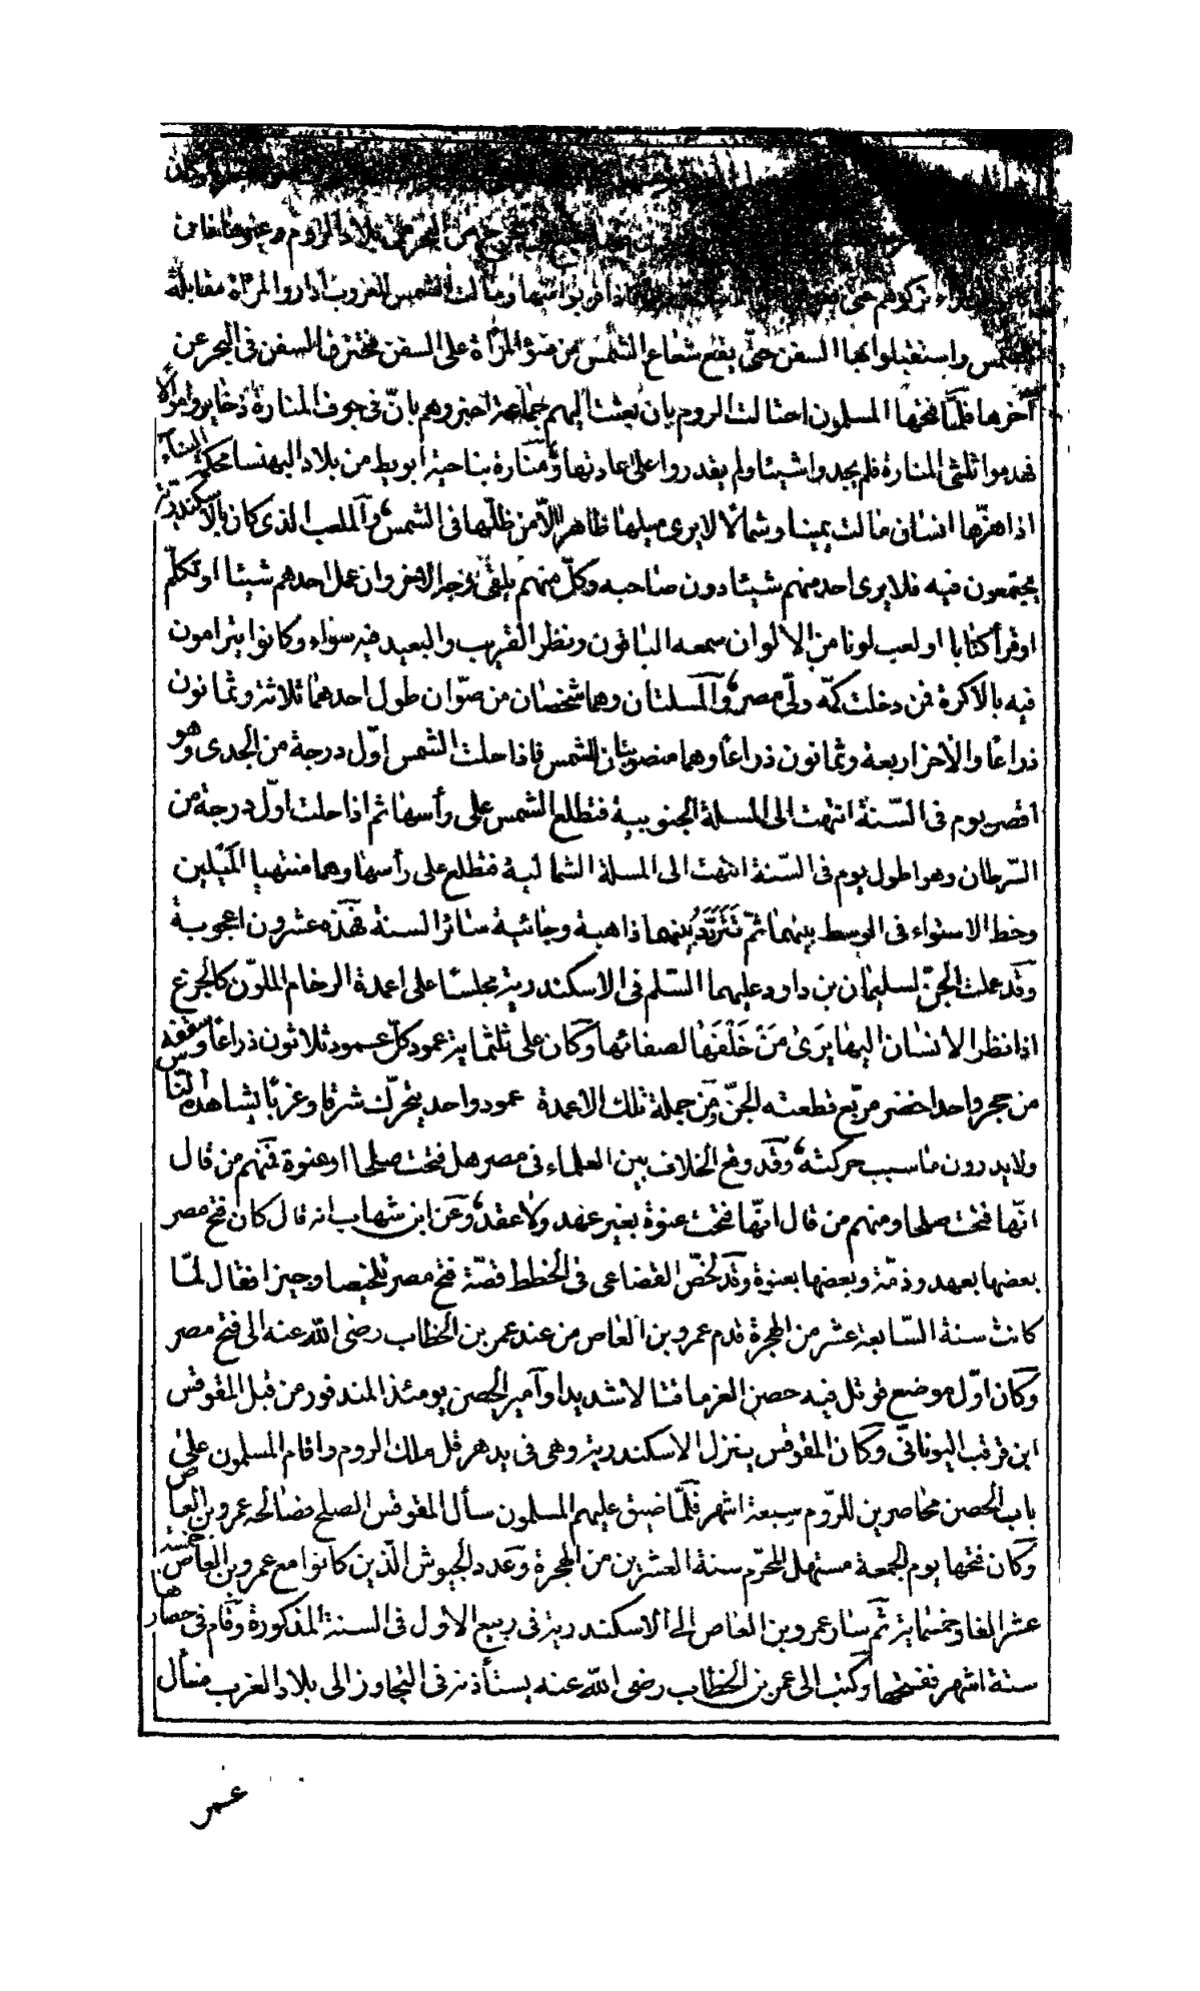 من البحر من بلاد الروم وغيرها فان
تركوهم حتى اذا قربوا منها ومالت الشمس للغروب اداروا المرآة مقابلة
الشمس واستقبلوا بها السفن حتى يقع شعاع الشمس من ضوء المرآة على السفن فتحترق السفن في البحر عن
آخرها فلمّا فتحها المسلمون احتالت الروم بان بعثت اليهم جماعة اخبروهم بانّ في جوف المنارة ذخاير واموالا
فهدموا ثلثى المنارة فلم يجدوا شيئا ولم يقدروا على اعادتها ومنارة بناحية ابويط من بلاد البهنسا محكمة البناء
اذا هزّها انسان مالت يمينا وشمالا لا يرى ميلها ظاهرا الّا من ظلّها في الشمس والملعب الذى كان بالاسكندرية
يجتمعون فيه فلا يرى احد منهم شيئا دون صاحبه وكلّ منهم يلقى وجه الاخر وان عمل احدهم شيئا او تكلّم
او قرأ كتابا او لعب لونا من الالوان سمعه الباقون ونظر القريب والبعيد فيه سواء وكانوا يترامون
فيه بالاكرة فمن دخلت كمّه ولّى مصر والمسلتان وهما شخصان من صوّان طول احدهما ثلاثة وثمانون
ذراعا والاخر اربعة وثمانون ذراعا وهما منصوبتان للشمس فاذا حلت الشمس اوّل درجة من الجدى وهو
اقصر يوم في السّنة انتهت الى المسلة الجنوبية فتطلع الشمس على رأسها ثم اذا حلت اوّل درجة من
السّرطان وهو اطول يوم في السّنة انتهت الى المسلة الشمالية فتطلع على رأسها وهما منتهيا الميلين
وخط الاستواء في الوسط بينهما ثمّ تَتَردَّدُ بينهما ذاهبة وجائية سائر السنة فهذه عشرون اعجوبة
وقد عملت الجنّ لسليمان بن داود عليهما السّلم في الاسكندرية مجلسا على اعمدة الرخام الملوّن كالجزع
اذا نظر الانسان اليها يَرَىٰ مَنْ خَلْفَهٰا لصفائها وكان على ثلثماية عمود كلّ عمود ثلاثون ذراعا وسقفه
من حجر واحد اخضر مربّع قطعته الجنّ ومن جملة تلك الاعمدة عمود واحد يتحرّك شرقا وغربا يشاهده النّاس
ولا يدرون ما سبب حركته وقد وقع الخلاف بين العلماء في مصر هل فتحت صلحا او عنوة فمنهم من قال
انّها فتحت صلحا ومنهم من قال انّها فتحت عنوة بغير عهد ولا عقد وعن ابن شهاب انه قال كان فتح مصر
بعضها بعهد وذمّة وبعضها بعنوة وقد لخّص القضاعى في الخطط قصّة فتح مصر تلخيصا وجيزا فقال لمّا
كانت سنة السّابعة عشر من الهجرة قدم عمرو بن العاص من عند عمر بن الخطاب رضى الله عنه الى فتح مصر
وكان اوّل موضع قوتل فيه حصن الفرما قتالا شديدا وأمير الحصن يومئذ المندقور من قبل المقوقس
ابن قرقب اليونانىّ وكان المقوقس ينزل الاسكندرية وهى في يد هرقل ملك الروم واقام المسلمون على
باب الحصن محاصرين للرّوم سبعة اشهر فلمّا ضيق عليهم المسلمون سأل المقوقس الصلح فصالحه عمرو بن العاص
وكان فتحها يوم الجمعة مستهل المحرّم سنة العشرين من الهجرة وعدد الجيوش الّذين كانوا مع عمرو بن العاص خمسة
عشر الفا وخمسماية ثم سار عمرو بن العاص الى الاسكندرية في ربيع الاول في السنة المذكورة وقام في حصارها
ستة اشهر ففتحها وكتب الى عمر بن الخطاب رضى الله عنه يستأذنه في التجاوز الى بلاد الغرب فسأل
عمر